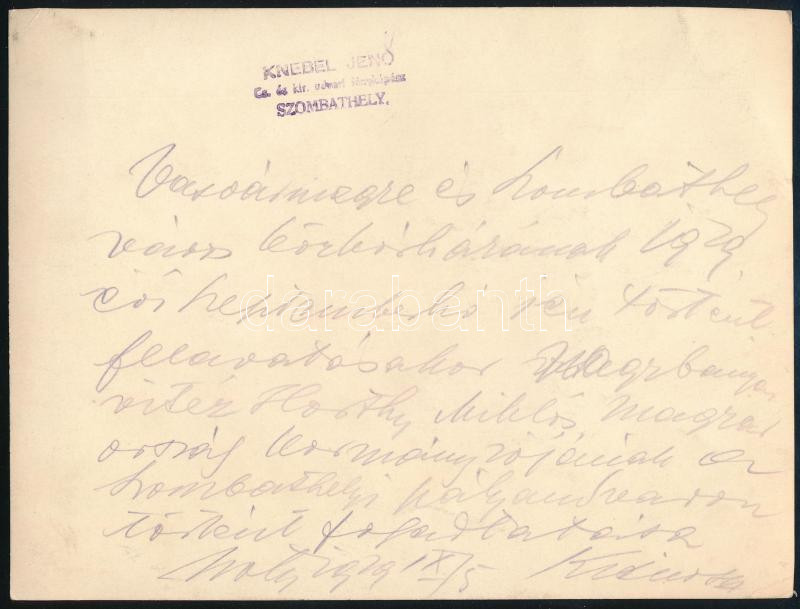 KNEBEL JENŐ
Cs. és kir. udvari fényképész
SZOMBATHELY.
Vasvármegye és Szombathely
város közkórházának 1929
évi szeptember hó én történt
felavatásakor Nagybányai
vitéz Horthy Miklós Magyar
ország kormányzójának a
szombathelyi pályaudvaron
történt fogadtatása
1929 IX/5
darabanth